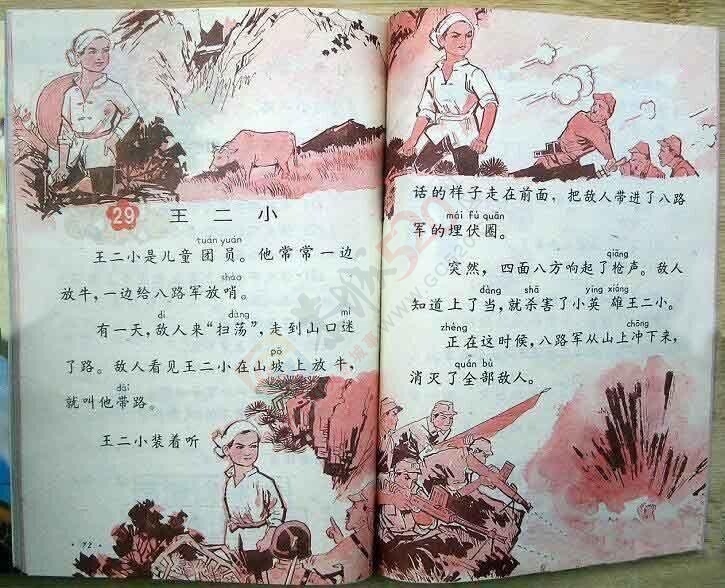 29 王二小
tuán yuán
王二小是儿童团员。他常常一边
shào
放牛，一边给八路军放哨。
dí dàng mí
有一天，敌人来“扫荡”，走到山口迷
pō
了路。敌人看见王二小在山坡上放牛，
dài
就叫他带路。
王二小装着听
·72·
话的样子走在前面，把敌人带进了八路
mái fú quān
军的埋伏圈。
qiāng
突然，四面八方响起了枪声。敌人
dàng shā yīng xióng
知道上了当，就杀害了小英雄王二小。
zhèng chōng
正在这时候，八路军从山上冲下来，
quán bù
消灭了全部敌人。